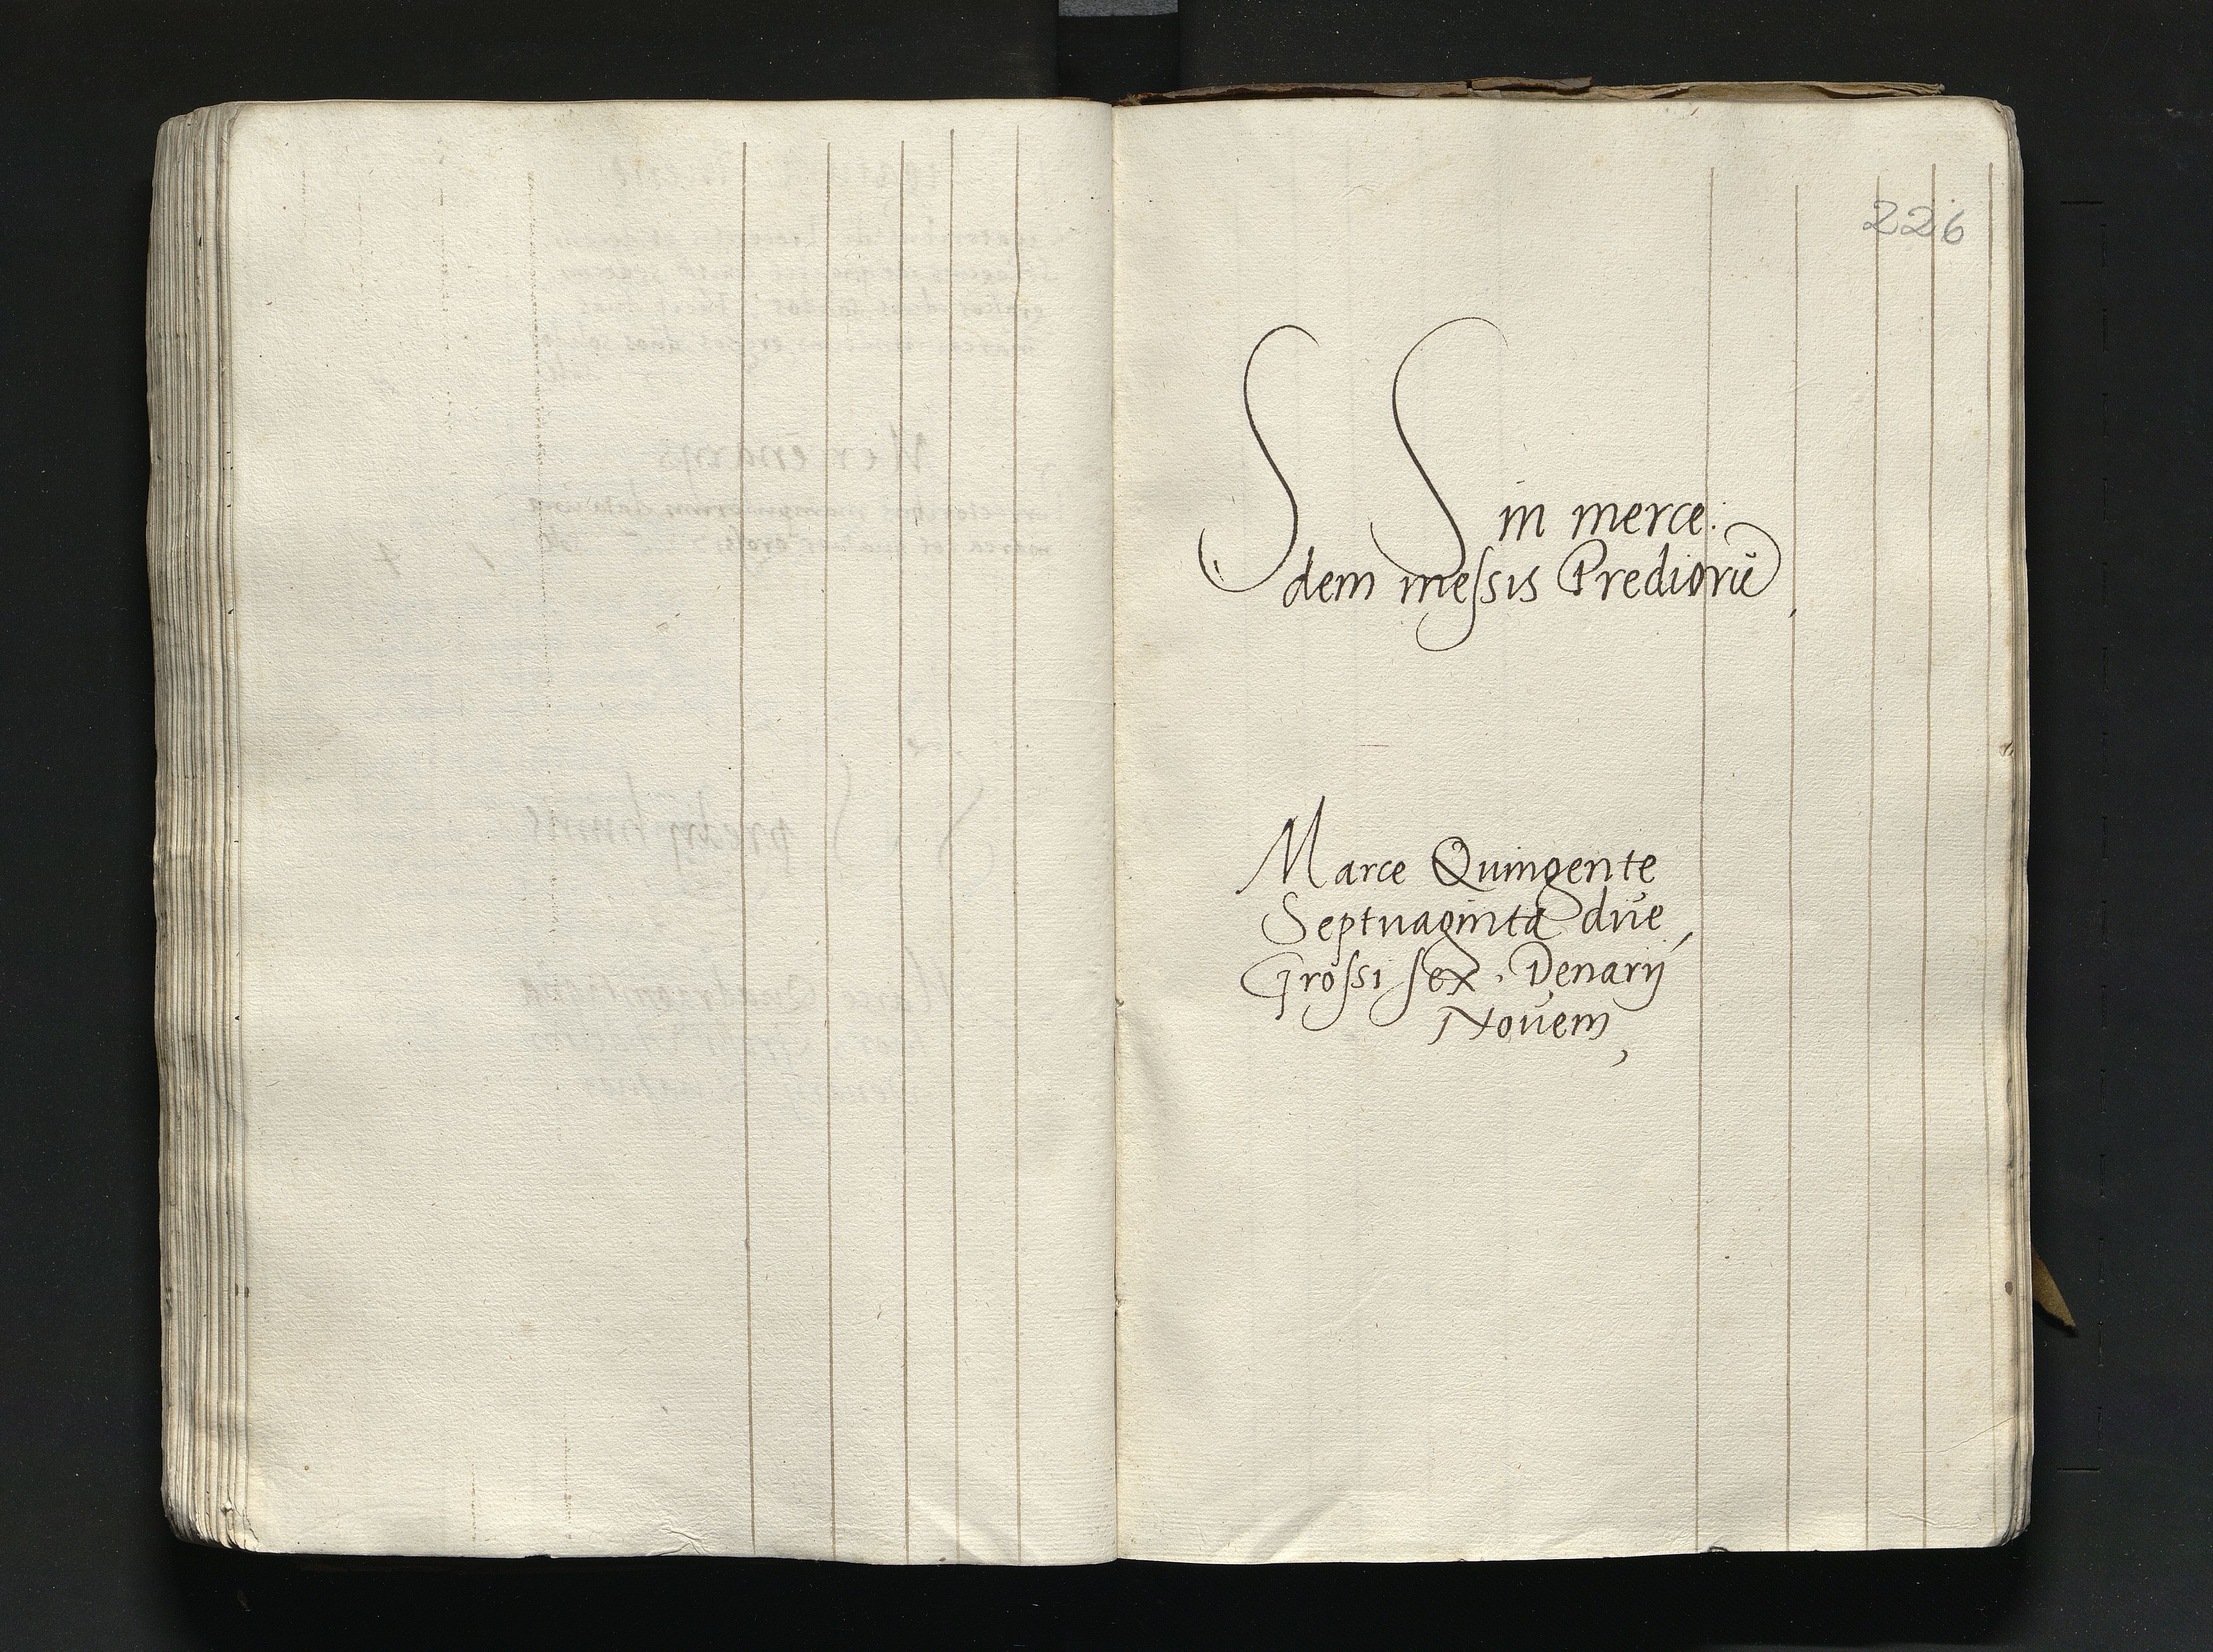 226
SS in merce:
dem meſsis Prediorū,
Marce Quingente
Septuaginta dŭe,
Groſsi ſex, Denarij
Noŭem,